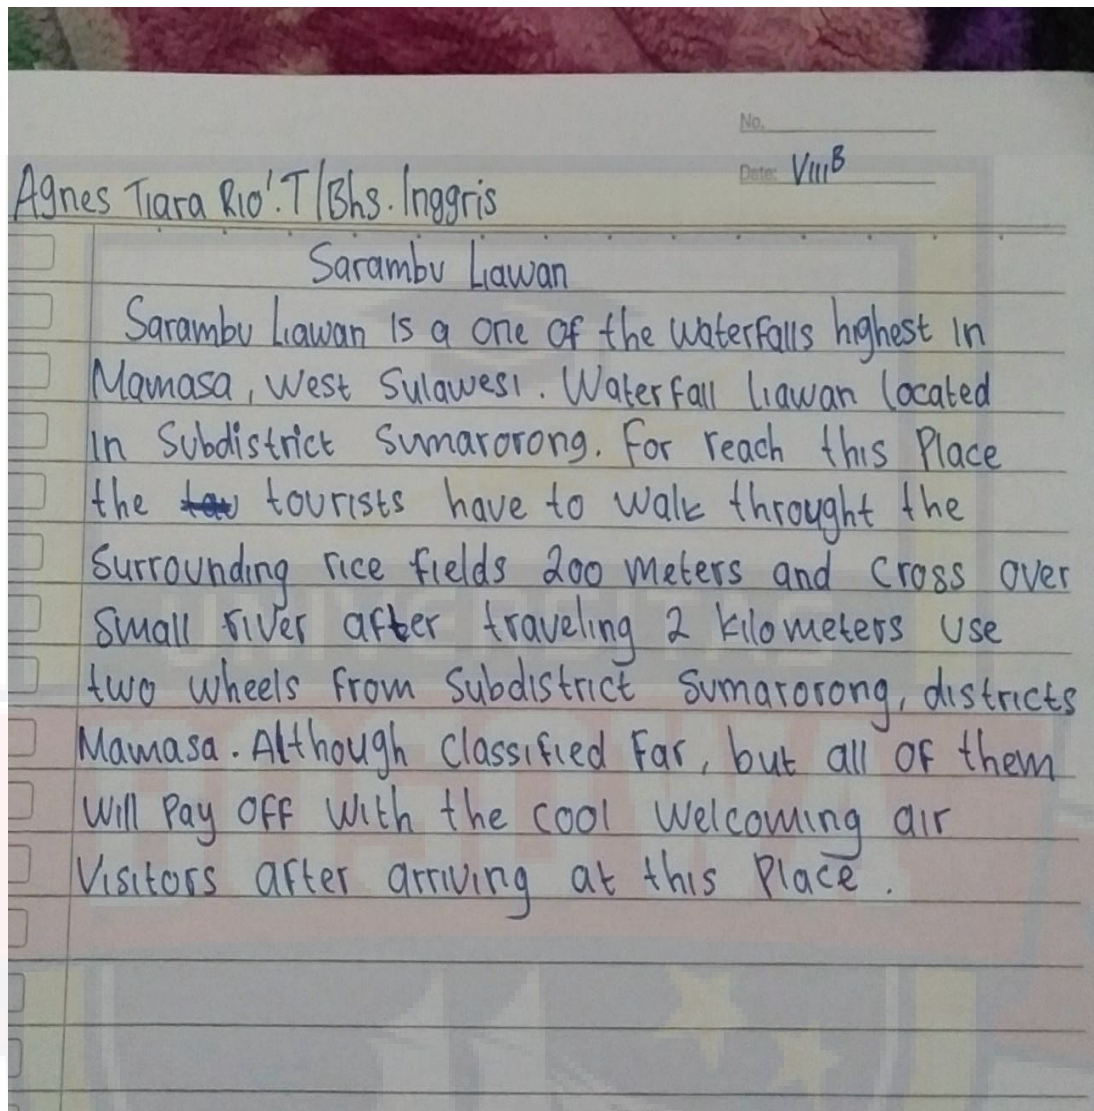 No.
Date: VIII B
Agnes Tiara Rio'.T/Bhs. Inggris
Sarambu Liawan
Sarambu Liawan is a one of the waterfalls highest in
Mamasa, West Sulawesi. Waterfall liawan located
in Subdistrict Sumarorong. For reach this Place
the tourists have to walk throught the
Surrounding rice fields 200 meters and cross over
Small river after traveling 2 kilometers use
two wheels from Subdistrict Sumarorong, districts
Mamasa. Although classified far, but all of them
will Pay off with the cool welcoming air
Visitors after arriving at this Place.
UNIVERSITAS
BOSOWA